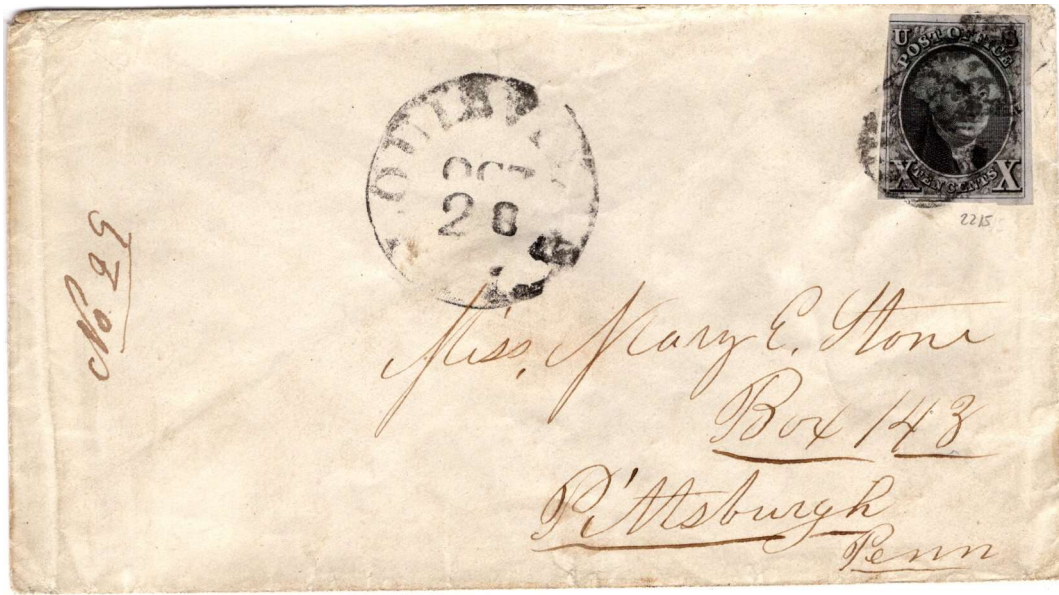 U S
POST OFFICE
X TEN CENTS X
2215
LOUISV
OCT
28
No. 29
Miss, Mary E. Stone
Box 143
Pittsburgh
Penn